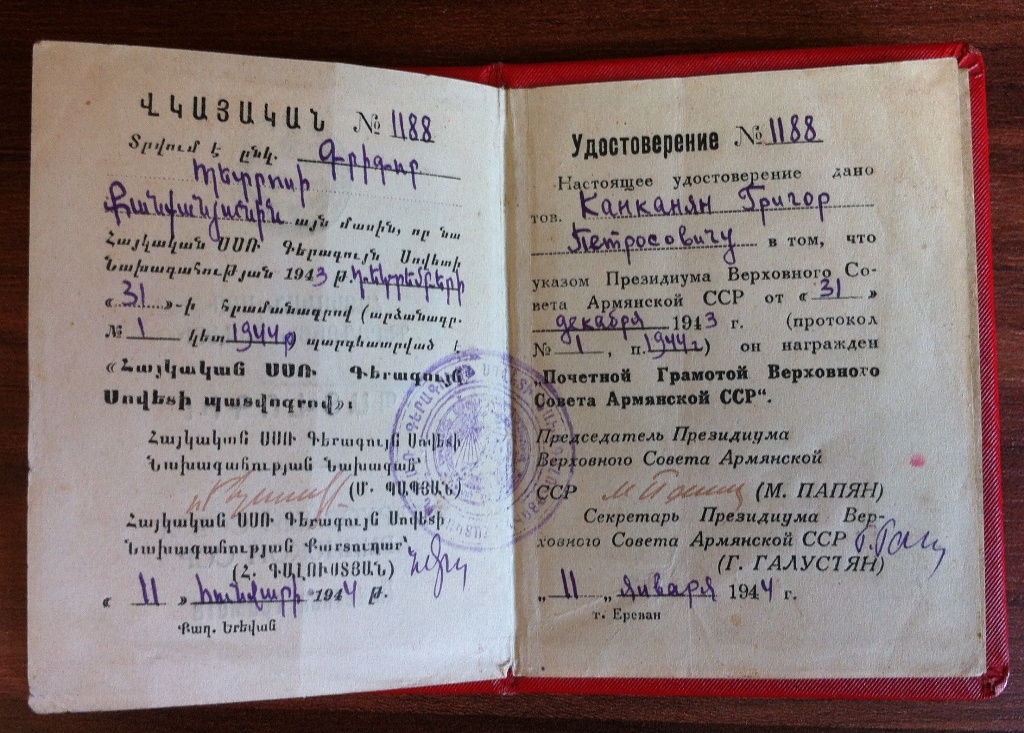 ՎԿԱՅԱԿԱՆ № 1188
Տրվում է ընկ. Գրիգոր
Պետրոսի
Քանքանյանին այն մասին, որ նա
Հայկական ՍՍՌ Գերագույն Սովետի
Նախագահության 1943 թ. դեկտեմբերի
« 31 »-ի հրամանագրով (արձանագր.
№ 1 կետ 1944 թ) պարգևատրված է
«Հայկական ՍՍՌ Գերագույն
Սովետի պատվոգրով»։
Հայկական ՍՍՌ Գերագույն Սովետի
Նախագահության Նախագահ՝
(Մ. ՊԱՊՅԱՆ)
Հայկական ՍՍՌ Գերագույն Սովետի
Նախագահության Քարտուղար՝
(Հ. ԳԱԼՈՒՍՏՅԱՆ)
« 11 » հունվարի 1944 թ.
Քաղ. Երևան
Удостоверение № 1188
Настоящее удостоверение дано
тов. Канканян Григор
Петросовичу в том, что
указом Президиума Верховного Со-
вета Армянской ССР от « 31 »
декабря 1943 г. (протокол
№ 1, п. 1944 г) он награжден
„Почетной Грамотой Верховного
Совета Армянской ССР“.
Председатель Президиума
Верховного Совета Армянской
ССР (М. ПАПЯН)
Секретарь Президиума Вер-
ховного Совета Армянской ССР
(Г. ГАЛУСТЯН)
„ 11 „ января 1944 г.
г. Ереван